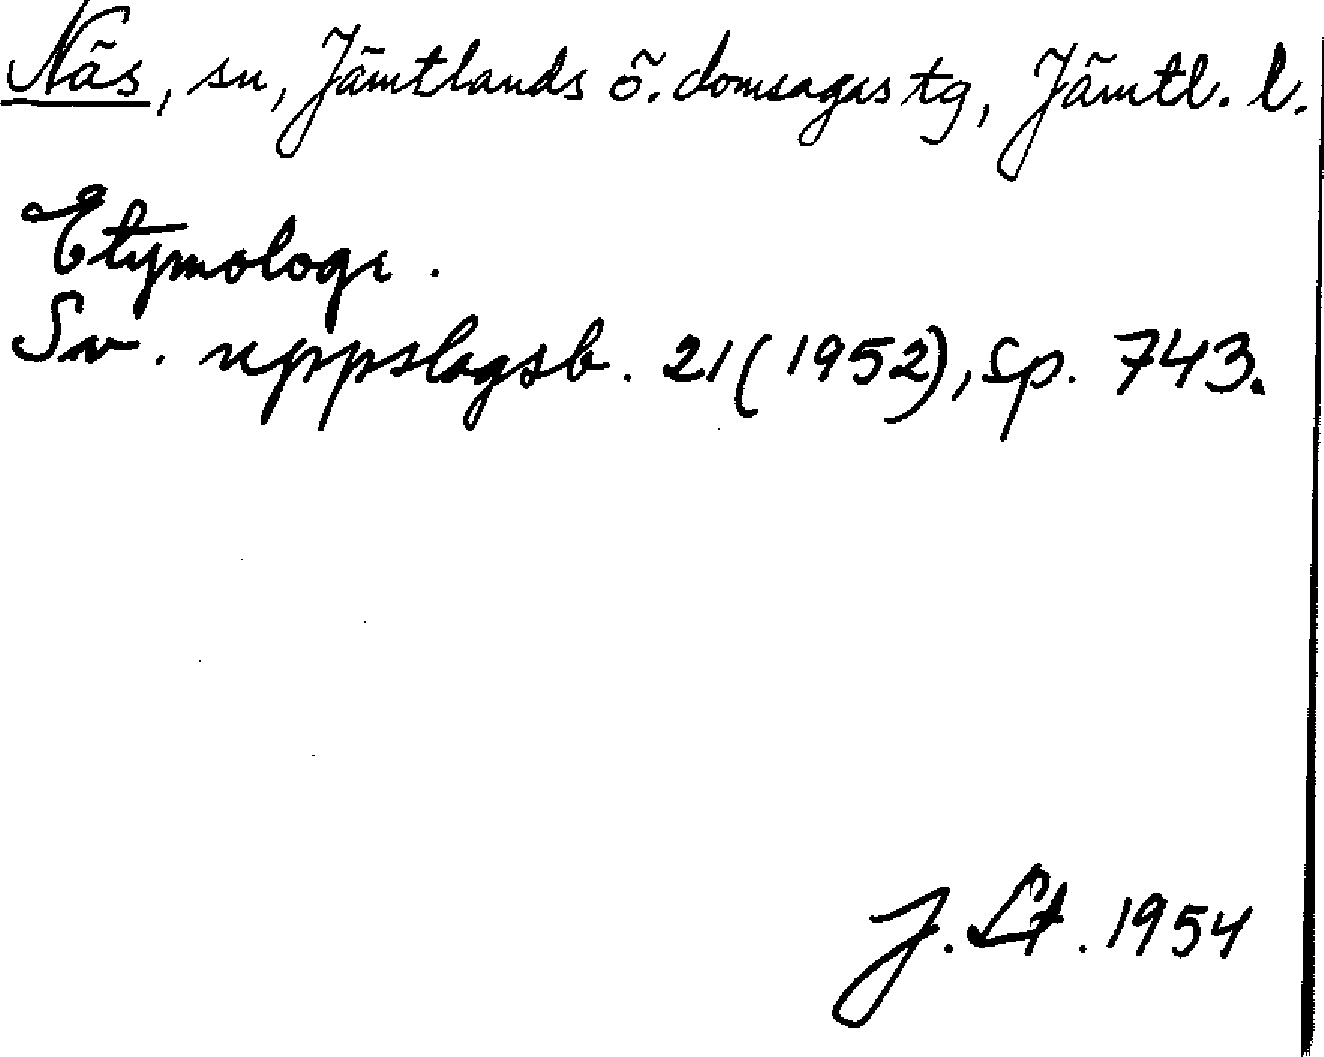 Näs, sn, Jämtlands ö. domsagas tg, Jämtl. l.
Etymologi.
Sv. uppslagsb. 21 (1952), sp. 743.
J. Lt. 1954